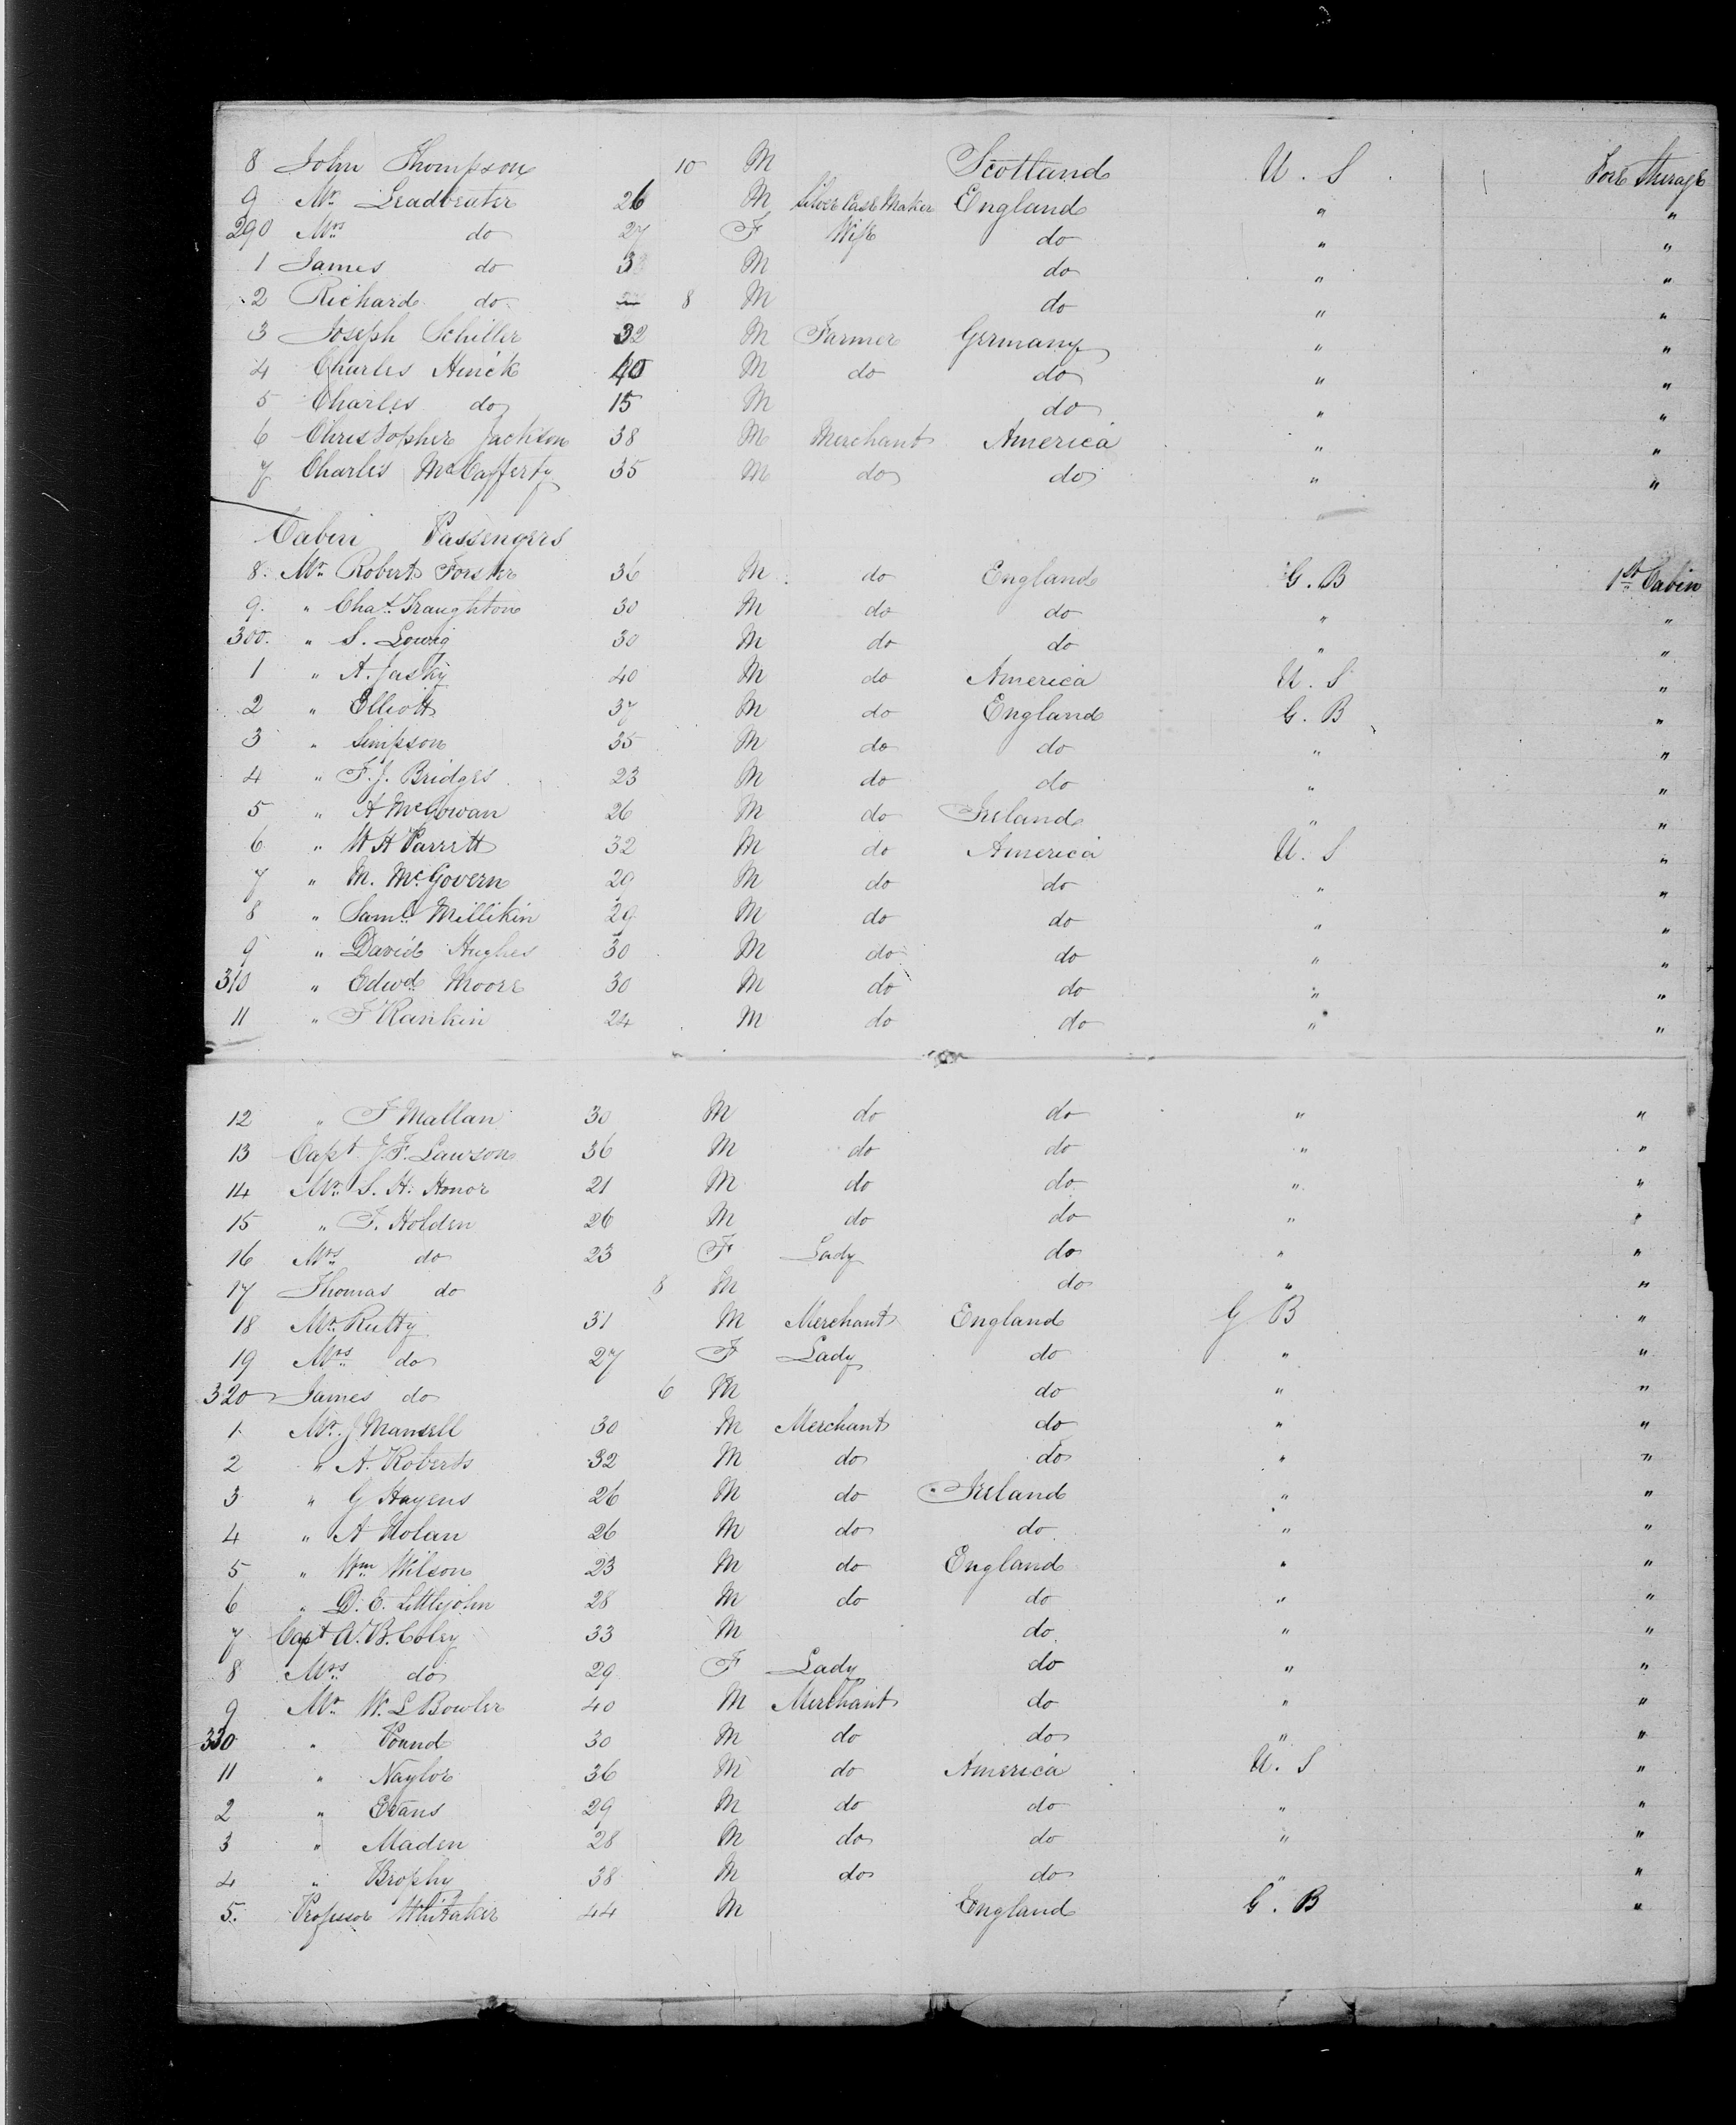 8 John Thompson 10 M Scotland U. S Fore Steerage
9 Mr. Leadbeater 26 M Silver Case Maker England " "
290 Mrs do 27 F Wife do " "
1 James do 3 M do " "
2 Richard do — 8 M do " "
3 Joseph Schiller 32 M Farmer Germany " "
4 Charles Hinck 40 M do do " "
5 Charles do 15 M do " "
6 Christopher Jackson 38 M Merchant America " "
7 Charles McCafferty 35 M do do " "
Cabin Passengers "
8. Mr. Robert Forster 36 M do England G. B 1st Cabin
9. " Chas. Traughton 30 M do do " "
300. " S. Lowrig 30 M do do " "
1 " A. Jasky 40 M do America U. S "
2 " Elliott 37 M do England G. B "
3 " Simpson 35 M do do " "
4 " F. J. Bridges 23 M do do " "
5 " A McGowan 26 M do Ireland " "
6 " W H Parritt 32 M do America U. S "
7 " M. McGovern 29 M do do " "
8 " Saml. Millikin 29 M do do " "
9 " David Hughes 30 M do do " "
310 " Edwd. Moore 30 M do do " "
11 " F Rankin 24 M do do " "
12 " F Mallan 30 M do do " "
13 Capt J. F. Lawson 36 M do do " "
14 Mr. S. H. Honor 21 M do do " "
15 " F. Holden 26 M do do " "
16 Mrs do 23 F Lady do " "
17 Thomas do 8 M do " "
18 Mr. Rutty 31 M Merchant England G B "
19 Mrs do 27 F Lady do " "
320 James do 6 M do " "
1. Mr. J Mansell 30 M Merchant do " "
2 " A. Roberts 32 M do do " "
3 " G Hayens 26 M do Ireland " "
4 " A Nolan 26 M do do " "
5 " Wm Wilson 23 M do England " "
6 " D. E. Littlejohn 28 M do do " "
7 Capt W. B. Coley 33 M do " "
8 Mrs do 29 F Lady do " "
9 Mr W. L Bowler 40 M Merchant do " "
330 " Pound 30 M do do " "
11 " Naylor 36 M do America U. S "
2 " Evans 29 M do do " "
3 " Maden 28 M do do " "
4 " Brophy 38 M do do " "
5. Professor Whitaker 44 M England G. B "